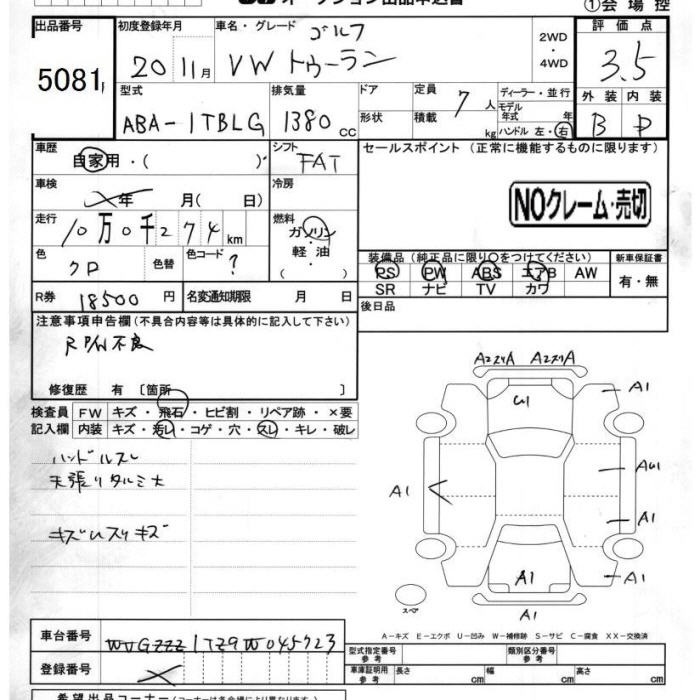 オークション出品申込書 ①会場控
出品番号 5081
初度登録年月 20 11月
車名・グレード ゴルフ
VW トゥーラン
2WD・4WD
評価点 3.5
型式 ABA-1TBLG
排気量 1380 CC
ドア
形状
定員 7 人
積載 kg
ディーラー・並行
モデル年式 年
ハンドル 左・右
外装 B
内装 D
車歴 自家用・( )
シフト FAT
セールスポイント (正常に機能するものに限ります)
NOクレーム・売切
車検 年 月( 日)
冷房
走行 10万0千274km
燃料 ガソリン・軽油 ( )
色 クロ
色替
色コード ?
装備品 (純正品に限り○をつけてください)
PS PW ABS エアB AW
SR ナビ TV カワ
新車保証書
有・無
R券 18500円
名変通知期限 月 日
後日品
注意事項申告欄 (不具合内容等は具体的に記入して下さい)
R P/W不良
修復歴 有 〔箇所 〕
検査員記入欄
FW キズ・飛石・ヒビ割・リペア跡・×要
内装 キズ・汚レ・コゲ・穴・スレ・キレ・破レ
ハンドルスレ
天張りタルミ大
キズUスリキズ
A2スリA A2スリA
G1
A1
AU1
A1
A1
A1
A1
A1
スペア
A-キズ E-エクボ U-凹み W-補修跡 S-サビ C-腐食 XX-交換済
車台番号 WVGZZZ1TZ9W045723
登録番号
型式指定番号 参考
類別区分番号 参考
車庫証明用 参考
長さ cm 幅 cm 高さ cm
希望出品コーナー (コーナーは各会場により異なります)